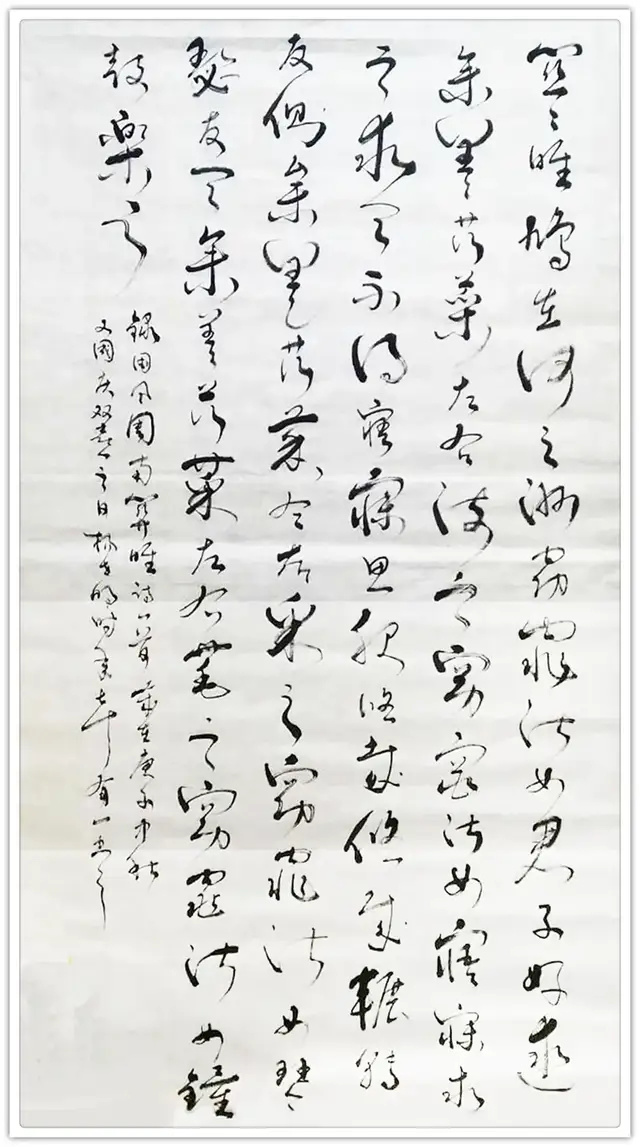 関〻雎鳩在河之洲窈窕淑女君子好逑
参差荇菜左右流之窈窕淑女寤寐求
之求之不得寤寐思服悠哉悠哉輾轉
反側参差荇菜左右采之窈窕淑女琴
瑟友之参差荇菜左右芼之窈窕淑女鐘
鼓樂之
錄国风周南関雎诗一首歲在庚子中秋
又國庆双喜之日时年七十有一书之